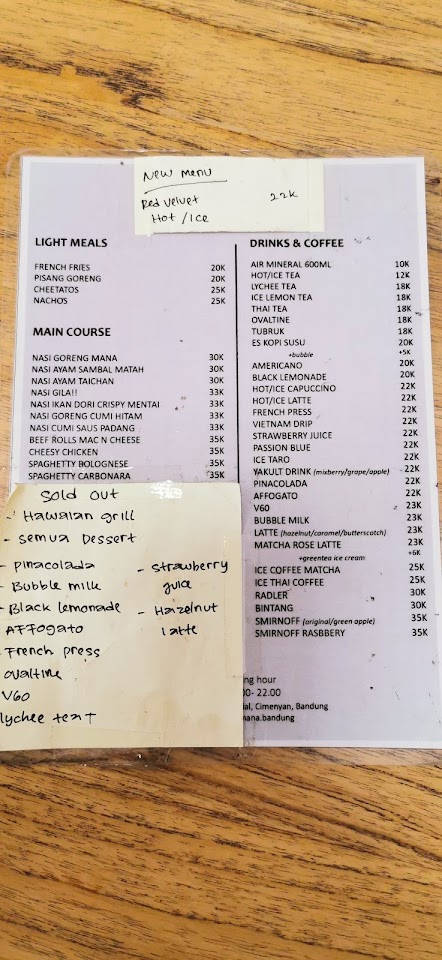 New Menu
Red Velvet 22k
Hot / Ice
LIGHT MEALS
FRENCH FRIES 20K
PISANG GORENG 20K
CHEETATOS 25K
NACHOS 25K
MAIN COURSE
NASI GORENG MANA 30K
NASI AYAM SAMBAL MATAH 30K
NASI AYAM TAICHAN 30K
NASI GILA!! 33K
NASI IKAN DORI CRISPY MENTAI 33K
NASI GORENG CUMI HITAM 33K
NASI CUMI SAUS PADANG 33K
BEEF ROLLS MAC N CHEESE 35K
CHEESY CHICKEN 35K
SPAGHETTY BOLOGNESE 35K
SPAGHETTY CARBONARA 35K
Sold Out
- Hawaian grill
- Semua Dessert
- Pinacolada
- Bubble milk
- Black lemonade
AFFogato
French press
ovaltine
V60
lychee tea
- Strawberry
juice
- Hazelnut
latte
DRINKS & COFFEE
AIR MINERAL 600ML 10K
HOT/ICE TEA 12K
LYCHEE TEA 18K
ICE LEMON TEA 18K
THAI TEA 18K
OVALTINE 18K
TUBRUK 18K
ES KOPI SUSU 20K
+bubble +5K
AMERICANO 20K
BLACK LEMONADE 20K
HOT/ICE CAPUCCINO 22K
HOT/ICE LATTE 22K
FRENCH PRESS 22K
VIETNAM DRIP 22K
STRAWBERRY JUICE 22K
PASSION BLUE 22K
ICE TARO 22K
YAKULT DRINK (mixberry/grape/apple) 22K
PINACOLADA 22K
AFFOGATO 22K
V60 23K
BUBBLE MILK 23K
LATTE (hazelnut/caramel/butterscotch) 23K
MATCHA ROSE LATTE 23K
+greentea ice cream +6K
ICE COFFEE MATCHA 25K
ICE THAI COFFEE 25K
RADLER 30K
BINTANG 30K
SMIRNOFF (original/green apple) 35K
SMIRNOFF RASBBERY 35K
ng hour
00- 22.00
ial, Cimenyan, Bandung
mana.bandung